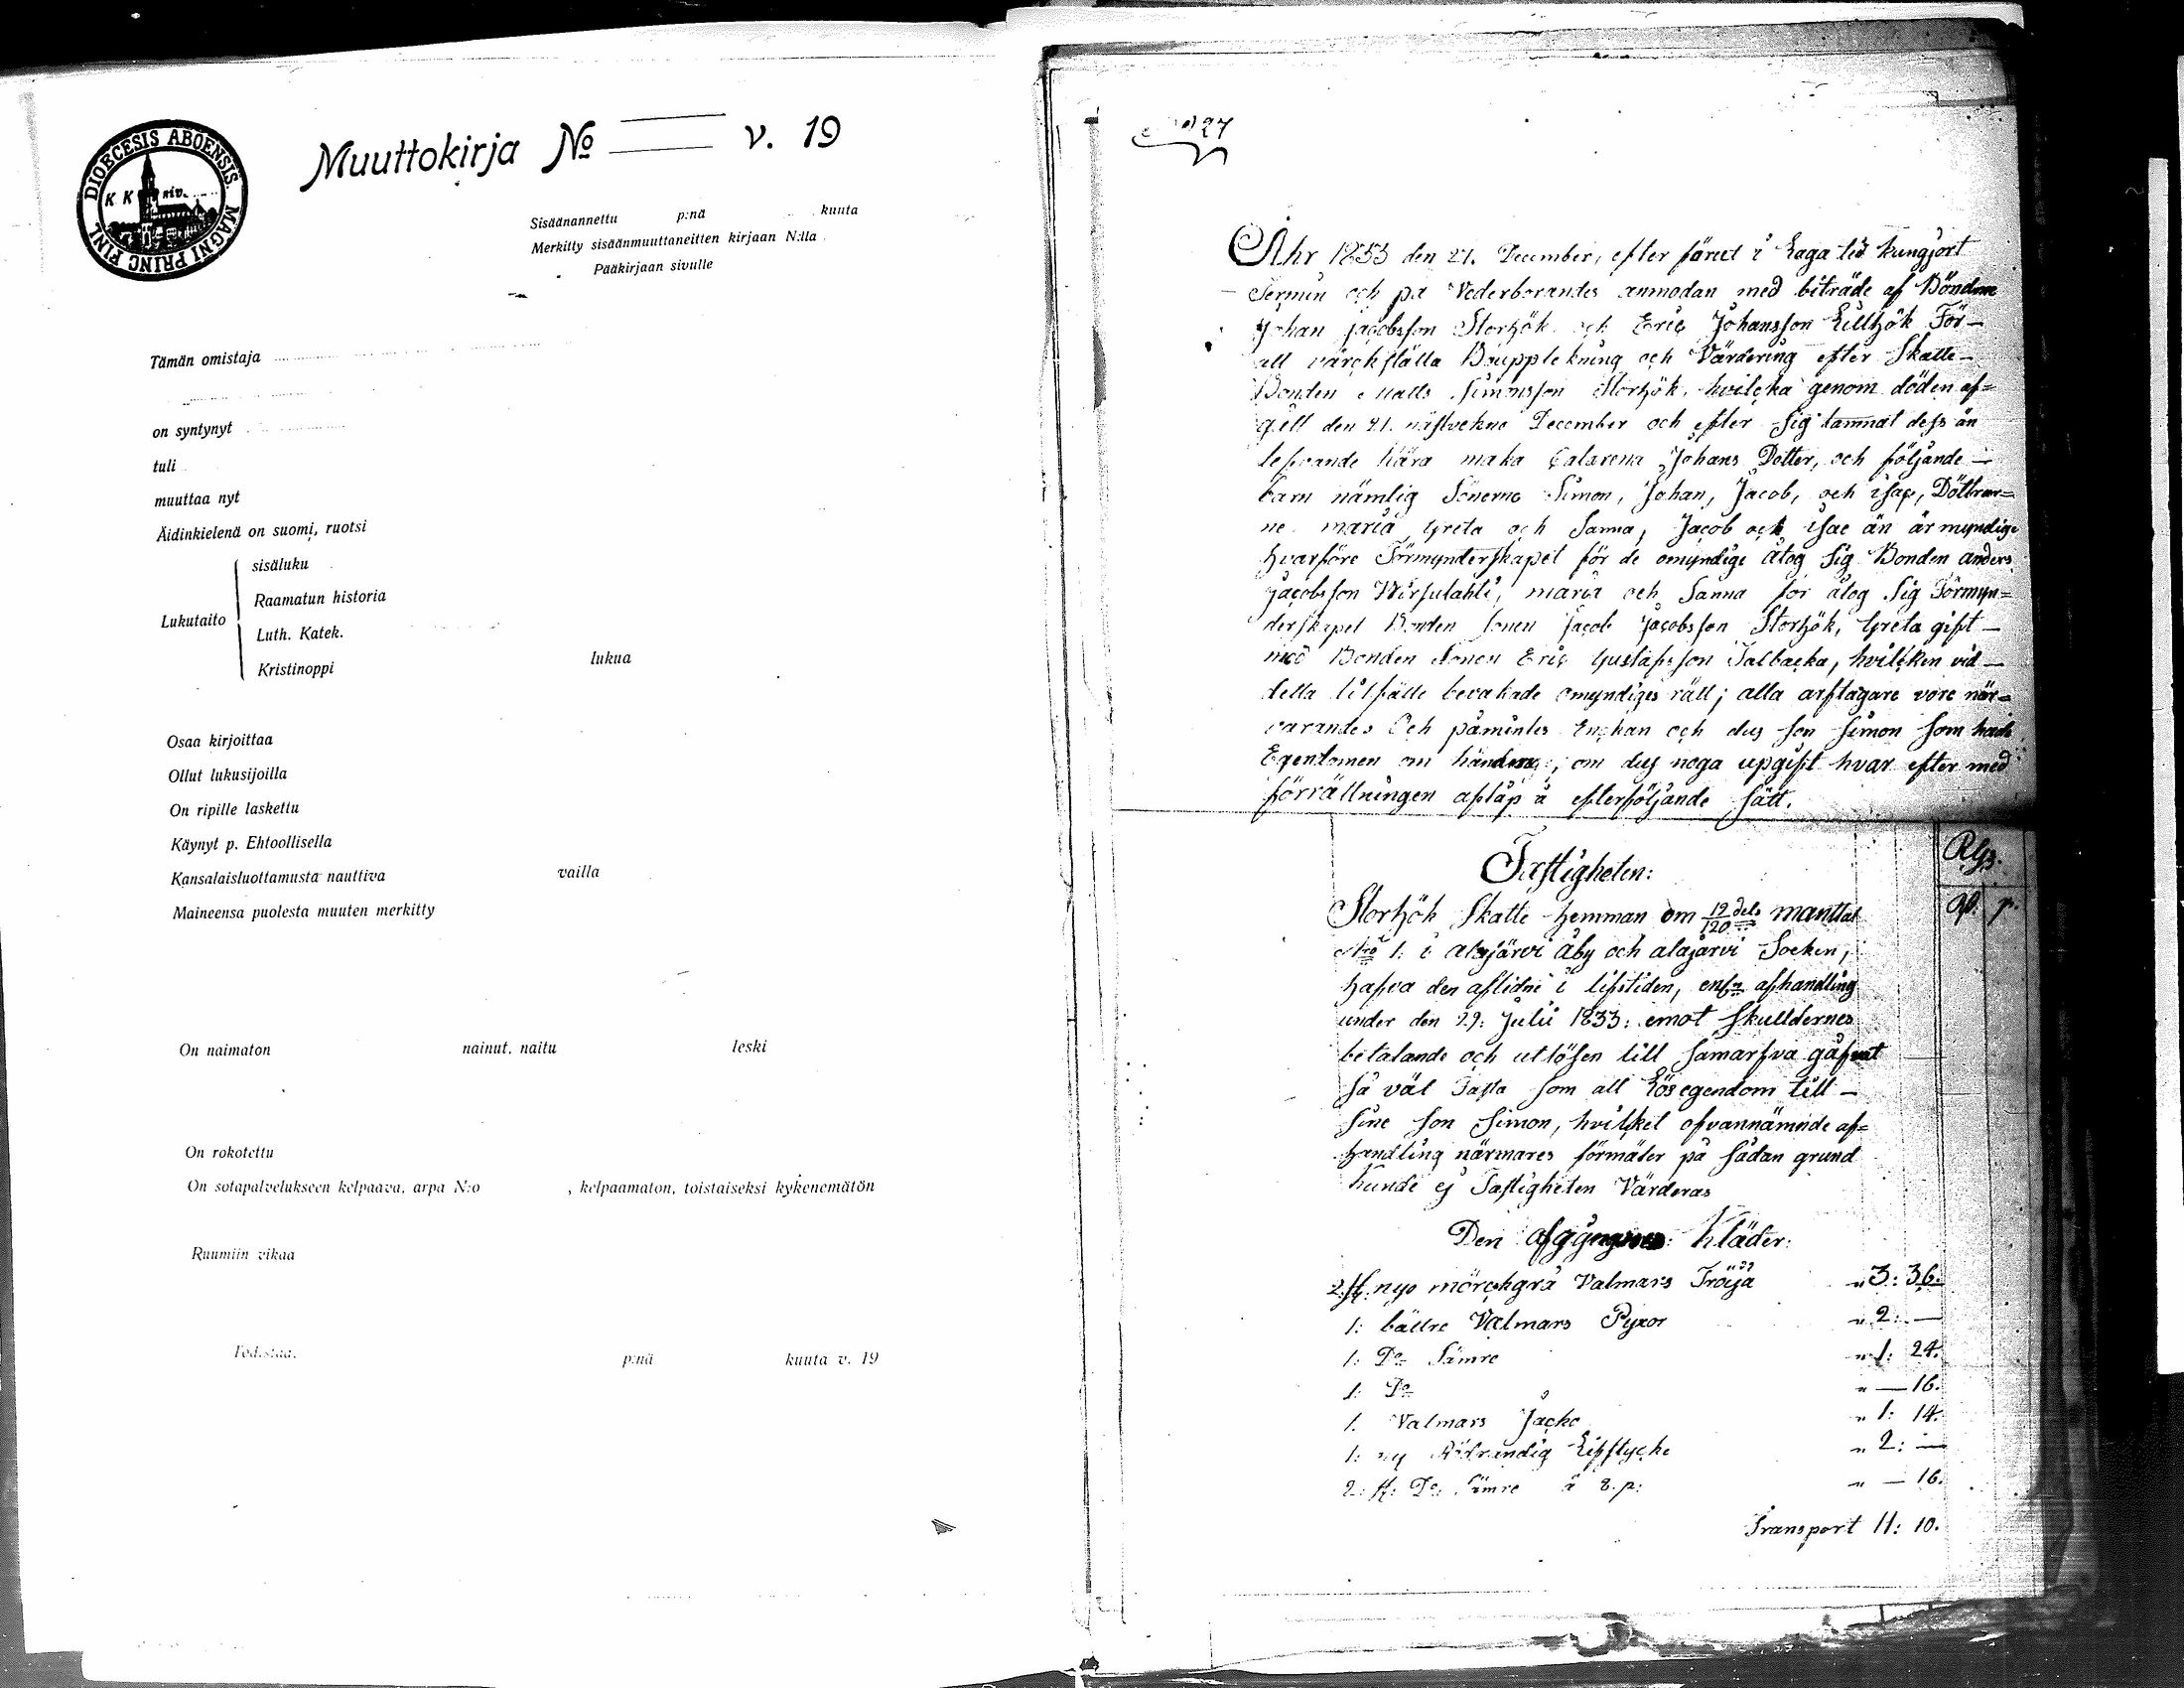 DIOECESIS ABOENSIS MAGNI PRINC FINL
K K
Muuttokirja No v. 19
Sisäänannettu p:nä kuuta
Merkitty sisäänmuuttaneitten kirjaan N:lla
Pääkirjaan sivulle
Tämän omistaja
on syntynyt
tuli
muuttaa nyt
Äidinkielenä on suomi, ruotsi
Lukutaito
sisäluku
Raamatun historia
Luth. Katek.
Kristinoppi lukua
Osaa kirjoittaa
Ollut lukusijoilla
On ripille laskettu
Käynyt p. Ehtoollisella
Kansalaisluottamusta nauttiva vailla
Maineensa puolesta muuten merkitty
On naimaton nainut, naitu leski
On rokotettu
On sotapalvelukseen kelpaava, arpa N:o , kelpaamaton, toistaiseksi kykenemätön
Ruumiin vikaa
Todistaa,
p:nä kuuta v. 19
Åhr 1833 den 27. December, efter förut i Laga tid kungjort
Termin och på Vederborandes anmodan med biträde af Bönderne
Johan Jacobsson Storhök och Eric Johansson Lillhök För-
att värckställa Bouppteckning och Värdering efter Skatte-
Bonden Matts Simonsson Storhök, hvilcka genom döden af=
gått den 21. December och efter sig lämnat dess än
lefvande kära maka Catarena Johans Dotter, och följande
barn nämlig Sönerne Simon, Johan, Jacob, och isac, Döttrar=
ne maria Greta och Sanna, Jacob och isac än är myndige
hvarföre Förmynderskapet för de omyndige åtog sig Bonden anders
Jacobsson Wirsulahti, maria och Sanna för åtog sig Förmyn=
derskapet Bonden sonen Jacob Jacobsson Storhök, Greta gift
med Bonden Sonen Eric Gustafsson Talbacka, hvilcken vid
detta tilfälle bevakade omyndiges rätt; alla arftagare vore när=
varandes Och påmintes Enckan och des son Simon som hade
Egendomen om händer, om des noga upgift hvar efter med
förrättningen aflåp å efterföljande sätt.
Fastigheten:
Rgs.
Storhök Skatte hemman om 19/120 dels manttal
No 1: i alajärvi åby och alajärvi Socken,
hafva den aflidne i lifstiden, enl afhandling
under den 29: Julii 1833: emot skulldernes
betalande och utlösen till samarfva gåfvit
så väl Fasta som all Lösegendom till
sine son Simon, hvilcket ofvannämnde af=
handling närmares förmäler på sådan grund
kunde ej Fastigheten Värderas
Den Kläder:
2 st. nya mörckgrå Valmars Tröija " 3: 36.
1: bättre Valmars Pyxor " 2: —
1: Do Sämre " 1: 24.
1: Do " — 16.
1. Valmars Jacka " 1: 14.
1: ny Rödrandig Lifstycke " 2: —
2: st: Do: Sämre à 8. p: " — 16.
Transport 11: 10.